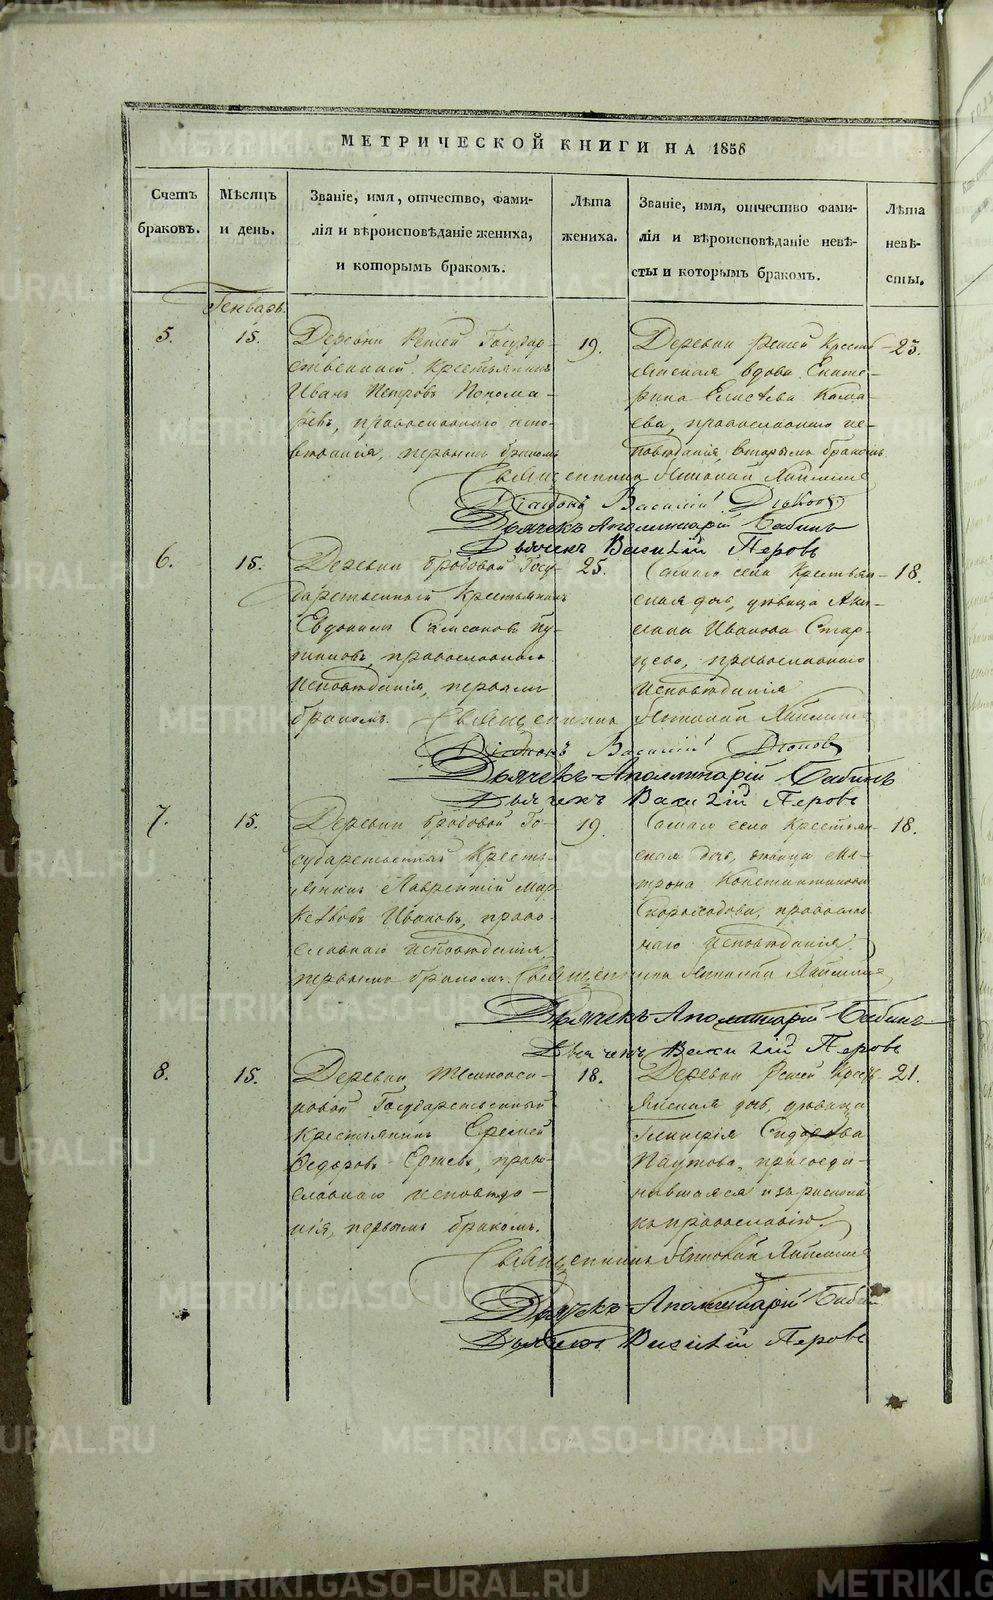 МЕТРИЧЕСКОЙ КНИГИ НА 1858
Счетъ браковъ.
Мѣсяцъ и день.
Званіе, имя, отчество, фами-
лія и вѣроисповѣданіе жениха,
и которымъ бракомъ.
Лѣта жениха.
Званіе, имя, отчество фами-
лія и вѣроисповѣданіе невѣ-
сты и которымъ бракомъ.
Лѣта невѣ-
сты.
Генварь.
5.
15.
Деревни Решей Государ-
ственный Крестьянинъ
Иванъ Петровъ Понома-
ревъ, православнаго испо-
вѣданія, первымъ бракомъ
19.
Деревни Решей Кресть
янская вдова Екате-
рина Елисѣева Кама-
ева, православнаго ис-
повѣданія, вторымъ бракомъ
25.
Священникъ
Діаконъ Василій
Дьячекъ Аполлинарій Бабинъ
Дьячекъ Василій Перовъ
6.
15.
Деревни Бродовой Госу-
дарственный Крестьянинъ
Евдокимъ Самсоновъ
православнаго
исповѣданія, первымъ
бракомъ.
25.
Самаго села Крестьян-
ская дочь, дѣвица Аку-
лина Иванова Стар-
цева, православнаго
исповѣданія
18.
Священникъ
Діаконъ Василій
Дьячекъ Аполлинарій Бабинъ
Дьячекъ Василій Перовъ
7.
15.
Деревни Бродовой Го-
сударственный Кресть-
янинъ Лаврентій Мар-
Ивановъ, право-
славнаго исповѣданія
первымъ бракомъ.
19.
Самаго села Крестьян-
ская дочь, дѣвица Ма-
трона Константинова
Скороходова, православ-
наго исповѣданія.
18.
Священникъ
Дьячекъ Аполлинарій Бабинъ
Дьячекъ Василій Перовъ
8.
15.
Деревни
новой Государственный
Крестьянинъ Еремей
Федоровъ право-
славнаго исповѣда-
нія, первымъ бракомъ.
18.
Деревни Решей Крест-
янская дочь, дѣвица
Гликерія Сидорова
Паутова, присоеди-
нившаяся изъ раскола
къ православію.
21.
Священникъ
Дьячекъ Аполлинарій Бабинъ
Дьячекъ Василій Перовъ
METRIKI.GASO-URAL.RU